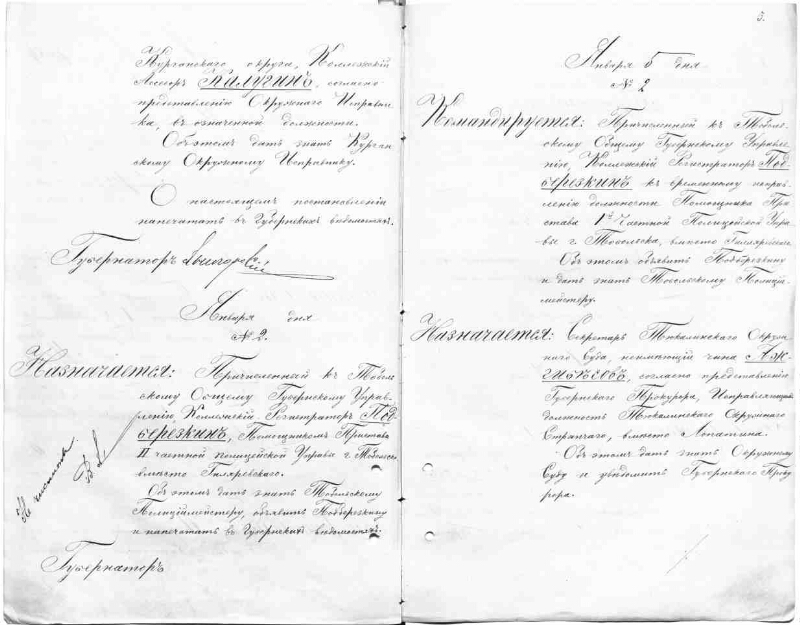 Курганскаго округа, Коллежскій
Ассесоръ Калугинъ, согласно
представленію Окружнаго Исправни-
ка, въ означенной должности.
Объ этомъ дать знать Курган-
скому Окружному Исправнику.
О настоящемъ постановленіи
напечатать въ Губернскихъ вѣдомостяхъ.
Губернаторъ
Января дня
№ 2.
Назначается: Причисленный къ Тоболь-
скому Общему Губернскому Управ-
ленію, Коллежскій Регистраторъ Под-
березкинъ, Помощникомъ Пристава
II частной полицейской Управы г. Тобольска
вмѣсто Гиляревскаго.
Объ этомъ дать знать Тобольскому
Полиціймейстеру, объявить Подберезкину
и напечатать въ Губернскихъ вѣдомостяхъ.
Губернаторъ
3.
Января 5 дня
№ 2
Командируется: Причисленный къ Тоболь-
скому Общему Губернскому Управле-
нію, Коллежскій Регистраторъ Под-
березкинъ къ временному исправ-
ленію должности Помощника При-
става 1й Частной Полицейской Упра-
вы г. Тобольска, вмѣсто Гиляревскаго.
Объ этомъ объявить Подберезкину
и дать знать Тобольскому Полицій-
мейстеру.
Назначается: Секретарь Тюкалинскаго Окруж-
наго Суда, неимѣющій чина
согласно представленію
Губернскаго Прокурора, Исправляющимъ
должность Тюкалинскаго Окружнаго
Стряпчаго, вмѣсто Лопатина.
Объ этомъ дать знать Окружному
Суду и увѣдомить Губернскаго Проку-
рора.